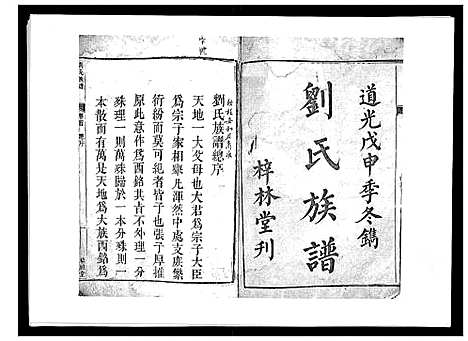 道光戊申季冬鐫
劉氏族譜
梓林堂刊
劉氏族譜總序
天地一大父母也大君為宗子大臣
為宗子家相擧凡渾然中處支庶繁
衍紛而莫可親者皆子也張子厚推
原此意作為西銘其言不外理一分
殊理一則萬殊歸於一本分殊則一
本散而有萬是天地為大族西銘為